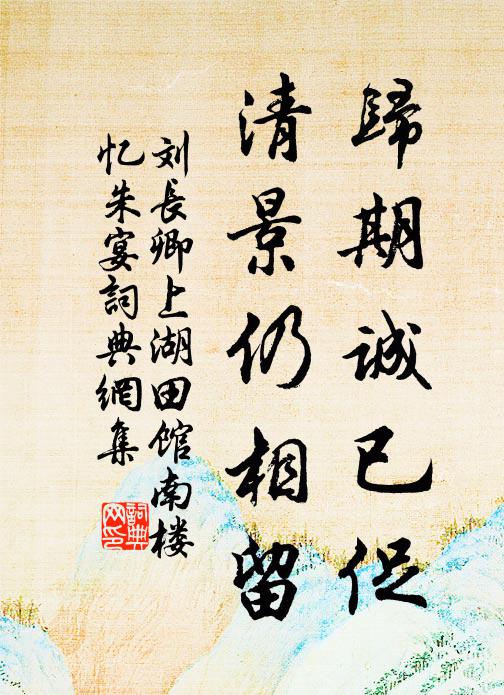 歸期誠已促
清景仍相留
刘長卿上湖田馆南楼
忆朱宴詞典網集
詞典
网印